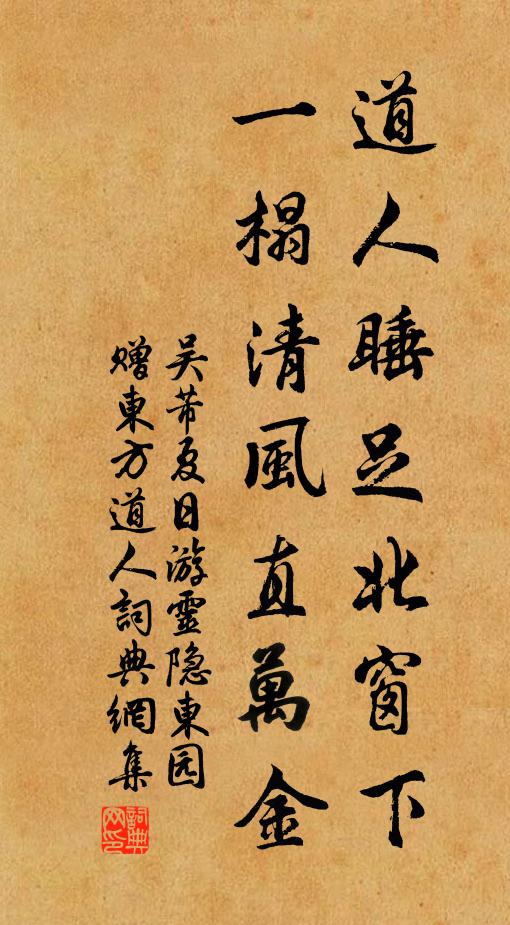 道人睡足北窗下
一榻清風直萬金
吴芾夏日游靈隐東园
赠東方道人詞典網集
詞典网印